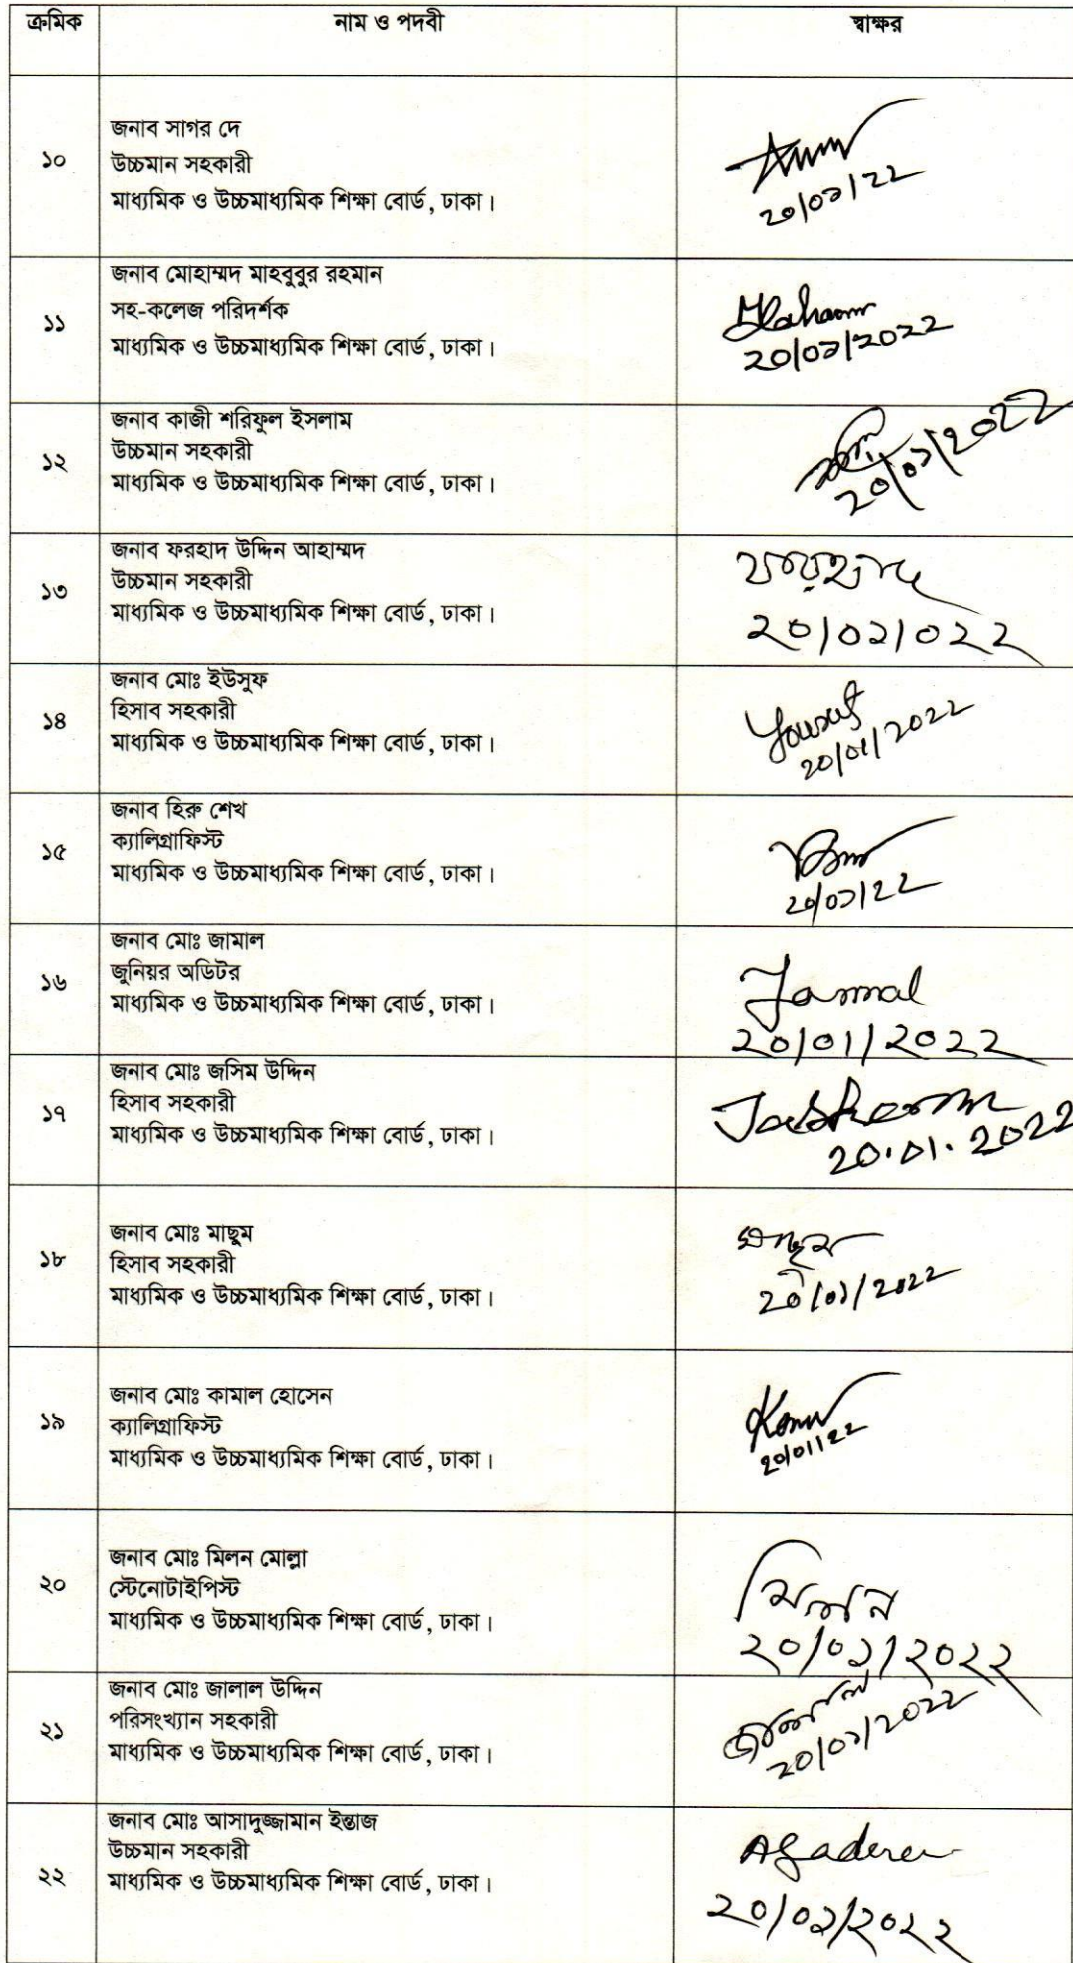 ক্রমিক নাম ও পদবী স্বাক্ষর
জনাব সাগর দে
১০ উচ্চমান সহকারী
মাধ্যমিক ও উচ্চমাধ্যমিক শিক্ষা বোর্ড, ঢাকা।
২০/০১/২২
জনাব মোহাম্মদ মাহবুবুর রহমান
১১ সহ-কলেজ পরিদর্শক
মাধ্যমিক ও উচ্চমাধ্যমিক শিক্ষা বোর্ড, ঢাকা।
২০/০১/২০২২
জনাব কাজী শরিফুল ইসলাম
১২ উচ্চমান সহকারী
মাধ্যমিক ও উচ্চমাধ্যমিক শিক্ষা বোর্ড, ঢাকা।
২০/০১/২০২২
জনাব ফরহাদ উদ্দিন আহাম্মদ
১৩ উচ্চমান সহকারী
মাধ্যমিক ও উচ্চমাধ্যমিক শিক্ষা বোর্ড, ঢাকা।
ফরহাদ
২০/০১/০২২
জনাব মোঃ ইউসুফ
১৪ হিসাব সহকারী
মাধ্যমিক ও উচ্চমাধ্যমিক শিক্ষা বোর্ড, ঢাকা।
Yousuf
20/01/2022
জনাব হিরু শেখ
১৫ ক্যালিগ্রাফিস্ট
মাধ্যমিক ও উচ্চমাধ্যমিক শিক্ষা বোর্ড, ঢাকা।
২০/০১/২২
জনাব মোঃ জামাল
১৬ জুনিয়র অডিটর
মাধ্যমিক ও উচ্চমাধ্যমিক শিক্ষা বোর্ড, ঢাকা।
Jammal
20/01/2022
জনাব মোঃ জসিম উদ্দিন
১৭ হিসাব সহকারী
মাধ্যমিক ও উচ্চমাধ্যমিক শিক্ষা বোর্ড, ঢাকা।
20.01.2022
জনাব মোঃ মাছুম
১৮ হিসাব সহকারী
মাধ্যমিক ও উচ্চমাধ্যমিক শিক্ষা বোর্ড, ঢাকা।
মাছুম
২০/০১/২০২২
জনাব মোঃ কামাল হোসেন
১৯ ক্যালিগ্রাফিস্ট
মাধ্যমিক ও উচ্চমাধ্যমিক শিক্ষা বোর্ড, ঢাকা।
20/01/22
জনাব মোঃ মিলন মোল্লা
২০ স্টেনোটাইপিস্ট
মাধ্যমিক ও উচ্চমাধ্যমিক শিক্ষা বোর্ড, ঢাকা।
মিলন
২০/০১/২০২২
জনাব মোঃ জালাল উদ্দিন
২১ পরিসংখ্যান সহকারী
মাধ্যমিক ও উচ্চমাধ্যমিক শিক্ষা বোর্ড, ঢাকা।
জালাল
২০/০১/২০২২
জনাব মোঃ আসাদুজ্জামান ইন্তাজ
২২ উচ্চমান সহকারী
মাধ্যমিক ও উচ্চমাধ্যমিক শিক্ষা বোর্ড, ঢাকা।
২০/০১/২০২২